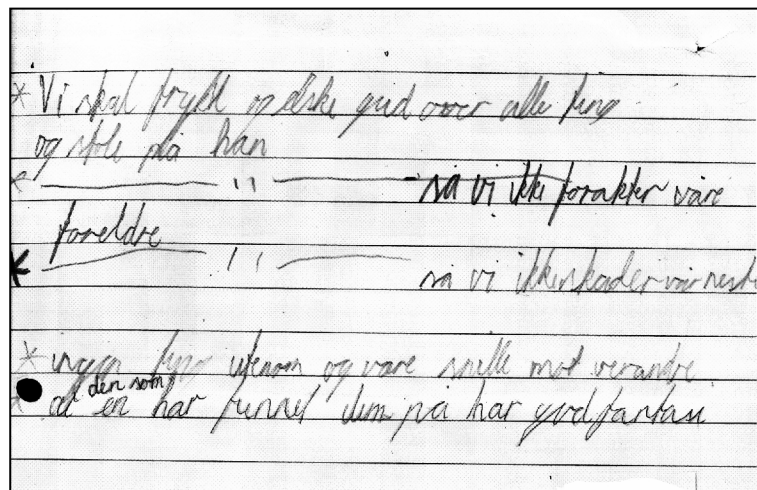 * Vi skal frykte og elske gud over alle ting
og stole på han
* —— " —— så vi ikke forakter våre
foreldre
* —— " —— så vi ikke skader vår neste
* ingen ting utenom og være snille mot verandre
* at den som har funnet dem på har god fantasi